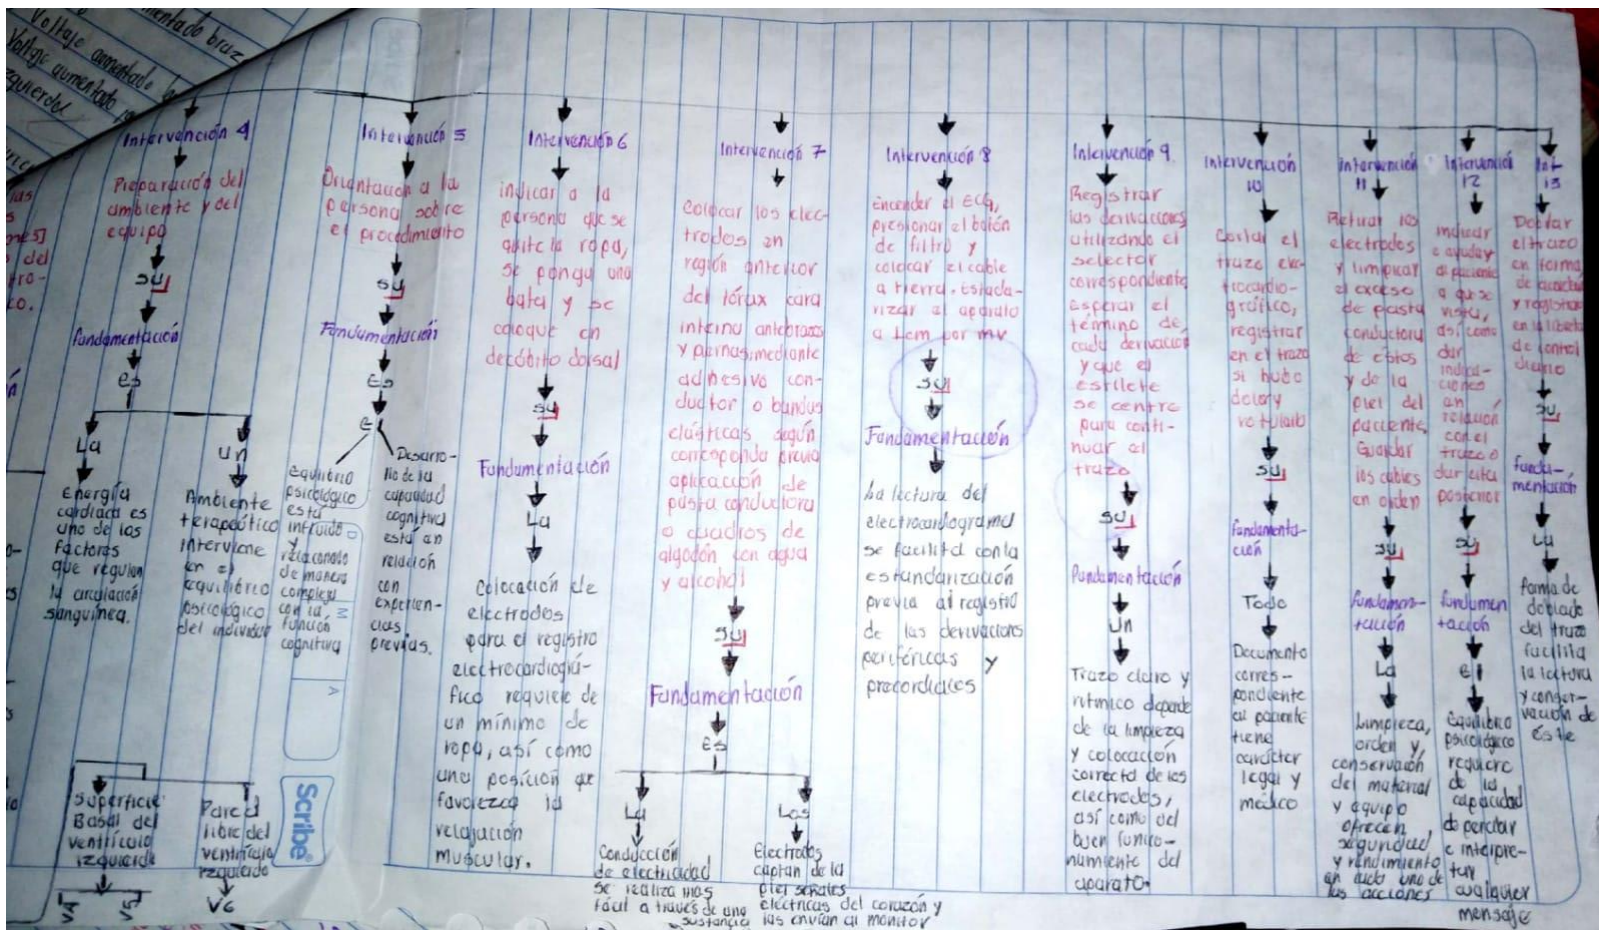 mentado braz
Voltaje aumentado
Voltaje aumentado
izquierdo
Intervención 4
Preparación del
ambiente y del
equipo
su
Fundamentación
es
La
Energía
cardiaca es
uno de los
factores
que regulan
la circulación
sanguínea.
un
Ambiente
terapeútico
interviene
en el
equilibrio
psicológico
del individuo
Superficie
Basal del
ventrículo
izquierdo
V4
V5
Pared
libre del
ventrículo
izquierdo
V6
Intervención 5
Orientación a la
persona sobre
el procedimiento
su
Fundamentación
Es
el
Equilibrio
psicológico
está
influido
y
relacionado
de manera
compleja
con la
función
cognitiva
Desarro-
llo de la
capacidad
cognitiva
está en
relación
con
experien-
cias
previas.
Scribe
Intervención 6
indicar a la
persona que se
quite la ropa,
se ponga una
bata y se
coloque en
decúbito dorsal
su
Fundamentación
La
Colocación de
electrodos
para el registro
electrocardiográ-
fico requiere de
un mínimo de
ropa, así como
una posición que
favorezca la
relajación
muscular.
Intervención 7
Colocar los elec-
trodos en
región anterior
del tórax cara
interna antebrazos
y piernas, mediante
adhesivo con-
ductor o bandas
elásticas según
corresponda previa
aplicación de
pasta conductora
o cuadros de
algodón con agua
y alcohol
su
Fundamentación
Es
La
Conducción
de electricidad
se realiza mas
fácil a través de una
sustancia
Los
Electrodos
captan de la
piel señales
eléctricas del corazón y
las envían al monitor
Intervención 8
encender el ECG,
presionar el botón
de filtro y
colocar el cable
a tierra. Estada-
rizar el aparato
a 1cm por mv
su
Fundamentación
La lectura del
electrocardiograma
se facilita con la
estandarización
previa al registro
de las derivaciones
periféricas y
precordiales
Intervención 9
Registrar
las derivaciones
utilizando el
selector
correspondiente
esperar el
término de
cada derivación
y que el
estilete
se centre
para conti-
nuar el
trazo
su
Fundamentación
Un
Trazo claro y
rítmico depende
de la limpieza
y colocación
correcta de los
electrodos,
así como del
buen funcio-
namiento del
aparato.
Intervención
10
Cortar el
trazo elec-
trocardio-
gráfico,
registrar
en el trazo
si hubo
dolor y
rotularlo
su
Fundamenta-
ción
Todo
Documento
corres-
pondiente
al paciente
tiene
carácter
legal y
médico
intervención
11
Retirar los
electrodos
y limpiar
el exceso
de pasta
conductora
de estos
y de la
piel del
paciente.
Guardar
los cables
en orden
su
fundamen-
tación
La
Limpieza,
orden y
conservación
del material
y equipo
ofrecen
seguridad
y rendimiento
en cada uno de
las acciones
Intervención
12
indicar
e ayudar
al paciente
a que se
vista,
así como
dar
indica-
ciones
en
relación
con el
trazo o
dar cita
posterior
su
fundamen
tación
el
Equilibrio
psicológico
requiere
de la
capacidad
de percibir
e interpre-
tar
cualquier
mensaje
Int
13
Doblar
el trazo
en forma
de acordeón
y registrar
en la libreta
de control
diario
su
funda-
mentación
La
forma de
doblado
del trazo
facilita
la lectura
y conser-
vación de
éste